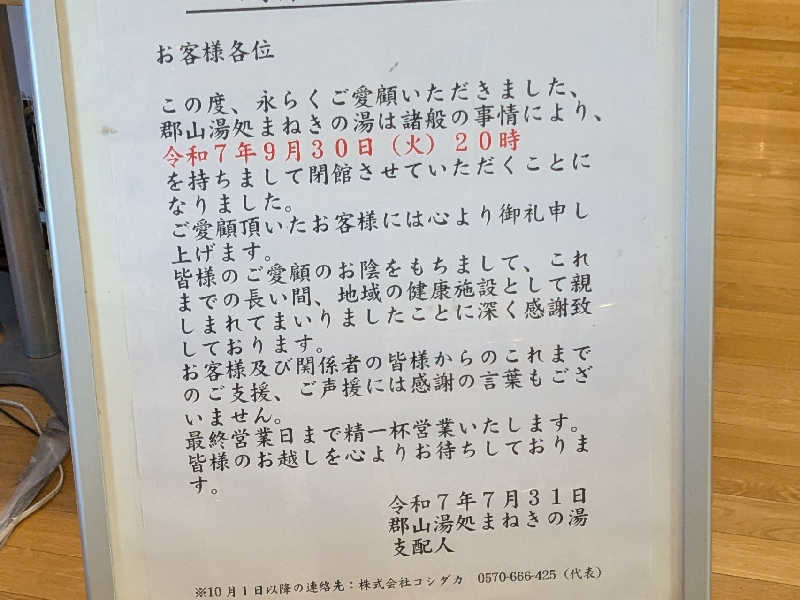 お客様各位
この度、永らくご愛顧いただきました、
郡山湯処まねきの湯は諸般の事情により、
令和７年９月３０日（火）２０時
を持ちまして閉館させていただくことに
なりました。
ご愛顧頂いたお客様には心より御礼申し
上げます。
皆様のご愛顧のお陰をもちまして、これ
までの長い間、地域の健康施設として親
しまれてまいりましたことに深く感謝致
しております。
お客様及び関係者の皆様からのこれまで
のご支援、ご声援には感謝の言葉もござ
いません。
最終営業日まで精一杯営業いたします。
皆様のお越しを心よりお待ちしておりま
す。
令和７年７月３１日
郡山湯処まねきの湯
支配人
※10月１日以降の連絡先：株式会社コシダカ　0570-666-425（代表）